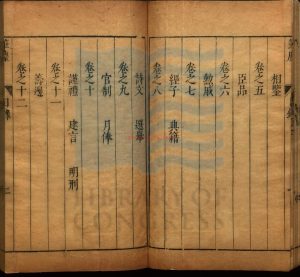 相鑒
卷之五
臣品
卷之六
勲戚
卷之七
經子 典籍
卷之八
詩文 選舉
卷之九
官制 月俸
卷之十
謹禮 建言 明刑
卷之十一
籌邊
卷之十二
目錄
LIBRARY OF
CONGRESS